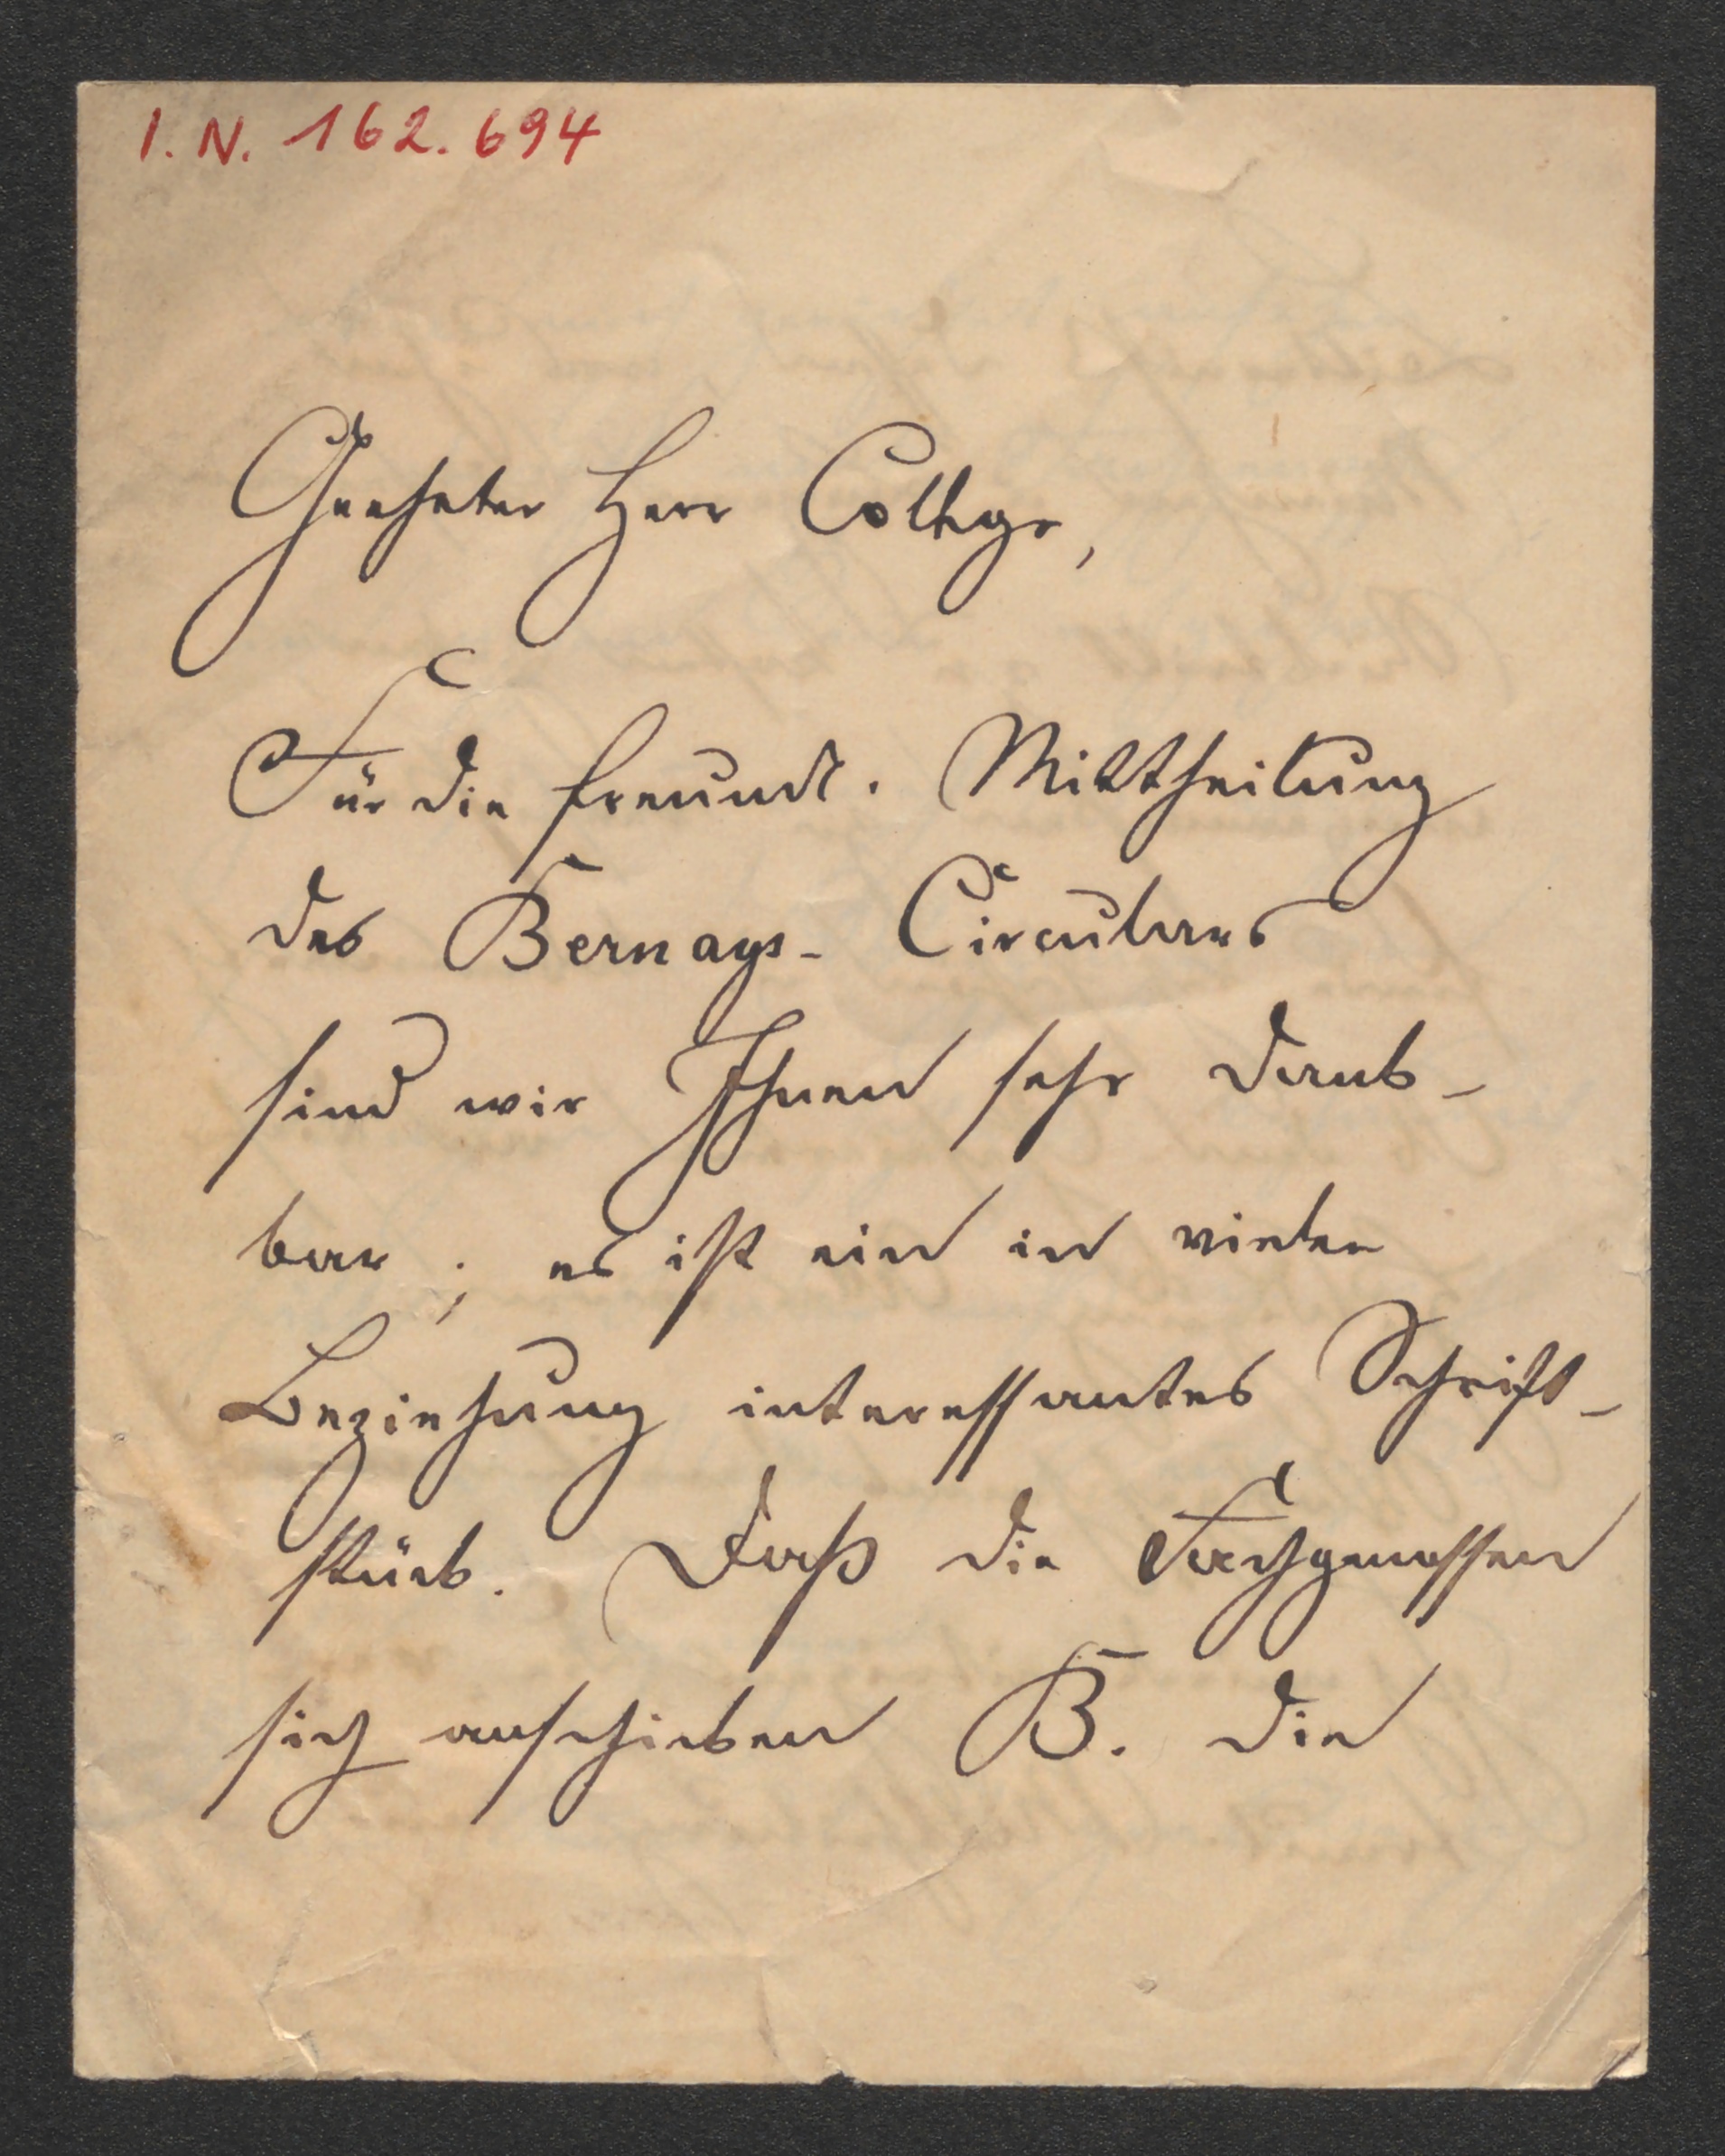 I. N. 162.694
Geehrter Herr College,
Für die freundl. Mittheilung
des Bernays-Circulares
sind wir Ihnen sehr dank-
bar; es ist ein in vieler
Beziehung interessantes Schrift-
stück. Daß die Fachgenossen
sich anschicken B. die